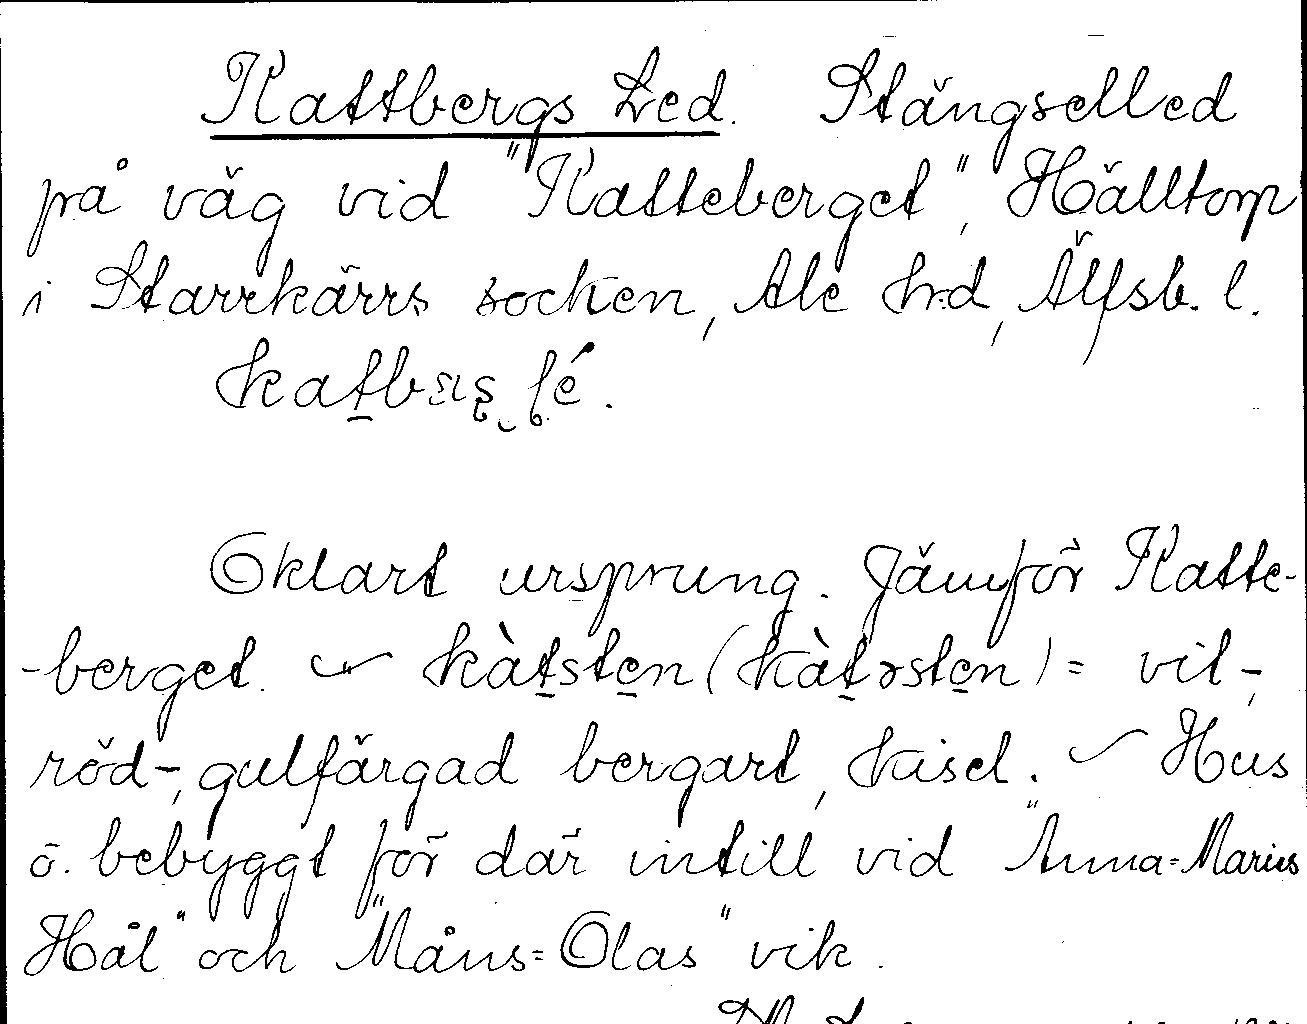 Kattbergs Led. Stängselled
på väg vid "Katteberget", Hälltorp
i Starrkärrs socken, Ale hrd, Älfsb. l.
Oklart ursprung. Jämför Katte-
-berget. kàtsten (kàtəsten) = vit-,
röd-, gulfärgad bergart, kisel. Hus
o. bebyggt för där intill vid "Anna=Marias
Hål" och "Måns=Olas" vik.